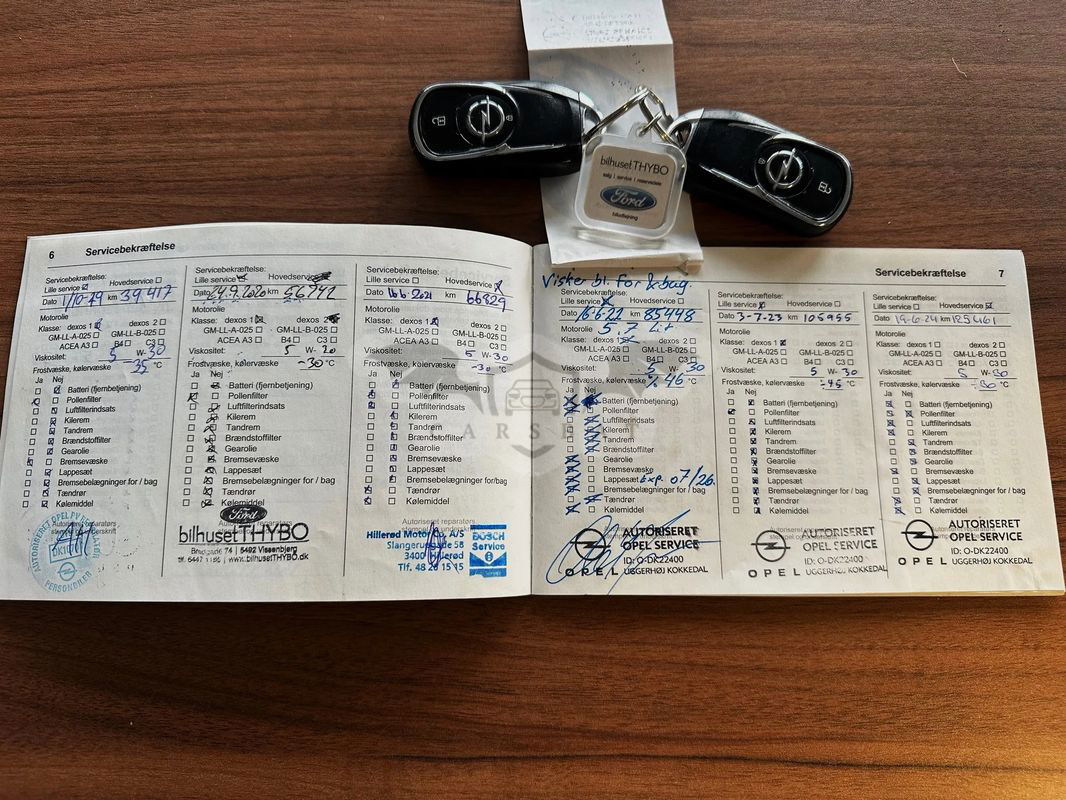 bilhuset THYBO
salg | service | reservedele
Ford
biludlejning
6 Servicebekræftelse
Servicebekræftelse:
Lille service Hovedservice
Dato 1/10-19 km 39417
Motorolie
Klasse: dexos 1 dexos 2
GM-LL-A-025 GM-LL-B-025
ACEA A3 B4 C3
Viskositet: 5 W-30
Frostvæske, kølervæske 35 °C
Ja Nej
Batteri (fjernbetjening)
Pollenfilter
Luftfilterindsats
Kilerem
Tandrem
Brændstoffilter
Gearolie
Bremsevæske
Lappesæt
Bremsebelægninger for / bag
Tændrør
Kølemiddel
AUTORISERET OPEL
PERSONBILER
Servicebekræftelse:
Lille service Hovedservice
Dato 24.9.2020 km 56742
Motorolie
Klasse: dexos 1 dexos 2
GM-LL-A-025 GM-LL-B-025
ACEA A3 B4 C3
Viskositet: 5 W-20
Frostvæske, kølervæske -30 °C
Ja Nej
Batteri (fjernbetjening)
Pollenfilter
Luftfilterindsats
Kilerem
Tandrem
Brændstoffilter
Gearolie
Bremsevæske
Lappesæt
Bremsebelægninger for / bag
Tændrør
Kølemiddel
Ford
bilhuset THYBO
74 | 5492 Vissenbjerg
www.bilhusetTHYBO.dk
Servicebekræftelse:
Lille service Hovedservice
Dato 16.6.2021 km 66829
Motorolie
Klasse: dexos 1 dexos 2
GM-LL-A-025 GM-LL-B-025
ACEA A3 B4 C3
Viskositet: 5 W-30
Frostvæske, kølervæske -30 °C
Ja Nej
Batteri (fjernbetjening)
Pollenfilter
Luftfilterindsats
Kilerem
Tandrem
Brændstoffilter
Gearolie
Bremsevæske
Lappesæt
Bremsebelægninger for / bag
Tændrør
Kølemiddel
Hillerød Motor Co. A/S
Slangerupgade 58
3400 Hillerød
Tlf. 48 26 15 15
BOSCH
Service
Servicebekræftelse 7
Visker bl. For & bag.
Servicebekræftelse:
Lille service Hovedservice
Dato 16-6-22 km 85448
Motorolie 5.7 Lit
Klasse: dexos 1 dexos 2
GM-LL-A-025 GM-LL-B-025
ACEA A3 B4 C3
Viskositet: 5 W-30
Frostvæske, kølervæske % 46 °C
Ja Nej
Batteri (fjernbetjening)
Pollenfilter
Luftfilterindsats
Kilerem
Tandrem
Brændstoffilter
Gearolie
Bremsevæske
Lappesæt Exp. 07/26.
Bremsebelægninger for / bag
Tændrør
Kølemiddel
AUTORISERET
OPEL SERVICE
ID: O-DK22400
OPEL UGGERHØJ KOKKEDAL
Servicebekræftelse:
Lille service Hovedservice
Dato 3-7-23 km 105955
Motorolie
Klasse: dexos 1 dexos 2
GM-LL-A-025 GM-LL-B-025
ACEA A3 B4 C3
Viskositet: 5 W-30
Frostvæske, kølervæske ÷45 °C
Ja Nej
Batteri (fjernbetjening)
Pollenfilter
Luftfilterindsats
Kilerem
Tandrem
Brændstoffilter
Gearolie
Bremsevæske
Lappesæt
Bremsebelægninger for / bag
Tændrør
Kølemiddel
AUTORISERET
OPEL SERVICE
ID: O-DK22400
OPEL UGGERHØJ KOKKEDAL
Servicebekræftelse:
Lille service Hovedservice
Dato 19-6-24 km 125461
Motorolie
Klasse: dexos 1 dexos 2
GM-LL-A-025 GM-LL-B-025
ACEA A3 B4 C3
Viskositet: 5 W-30
Frostvæske, kølervæske ÷30 °C
Ja Nej
Batteri (fjernbetjening)
Pollenfilter
Luftfilterindsats
Kilerem
Tandrem
Brændstoffilter
Gearolie
Bremsevæske
Lappesæt
Bremsebelægninger for / bag
Tændrør
Kølemiddel
AUTORISERET
OPEL SERVICE
ID: O-DK22400
OPEL UGGERHØJ KOKKEDAL